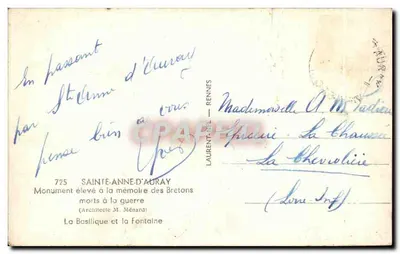 En passant
par Ste Anne d'Auray
pense bien à vous
725 SAINTE-ANNE-D'AURAY
Monument élevé à la mémoire des Bretons
morts à la guerre
(Architecte M. Ménard)
La Basilique et la Fontaine
LAURENT-NEL - RENNES
Mademoiselle A. M.
La Chaussée
La Chevrolière
(Loire-Inf)
CPARAMA